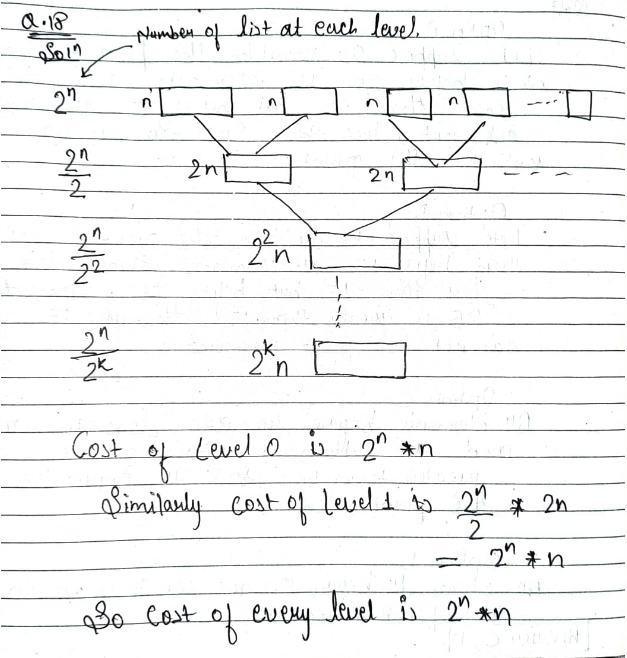 Q.18
Soln
Number of list at each level.
2^n n n n n ----
2^n/2 2n 2n ----
2^n/2^2 2^2n
2^n/2^k 2^kn
Cost of Level 0 is 2^n *n
Similarly cost of level 1 is 2^n/2 * 2n
= 2^n *n
So Cost of every level is 2^n *n